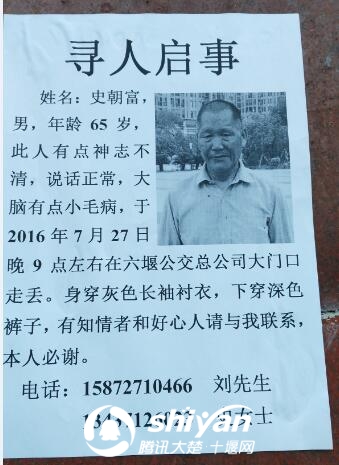 寻人启事
姓名：史朝富，
男，年龄 65 岁，
此人有点神志不
清，说话正常，大
脑有点小毛病，于
2016 年 7 月 27 日
晚 9 点左右在六堰公交总公司大门口
走丢。身穿灰色长袖衬衣，下穿深色
裤子，有知情者和好心人请与我联系，
本人必谢。
电话：15872710466 刘先生
女士
shiyan
腾讯大楚·十堰网